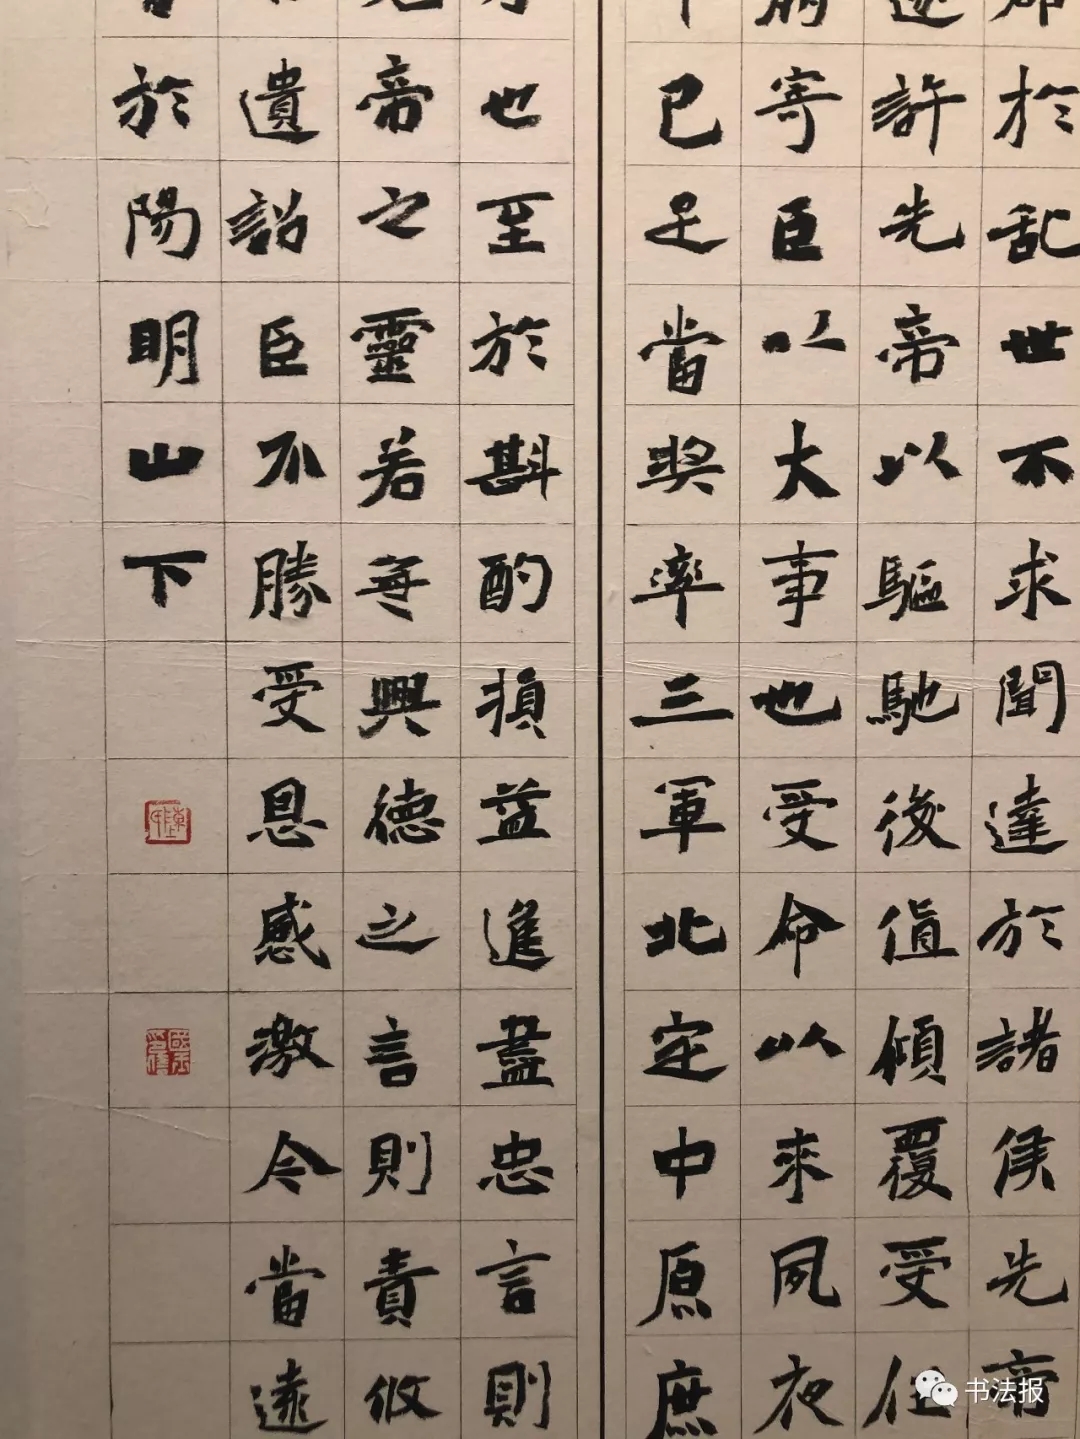 於乱世不求聞達於諸侯先帝
遂許先帝以驅馳後值傾覆受任
寄臣以大事也受命以來夙夜
已足當奖率三軍北定中原庶
也至於斟酌損益進盡忠言則
帝之靈若無興德之言則責攸
遺詔臣不勝受恩感激今當遠
於陽明山下
书法报